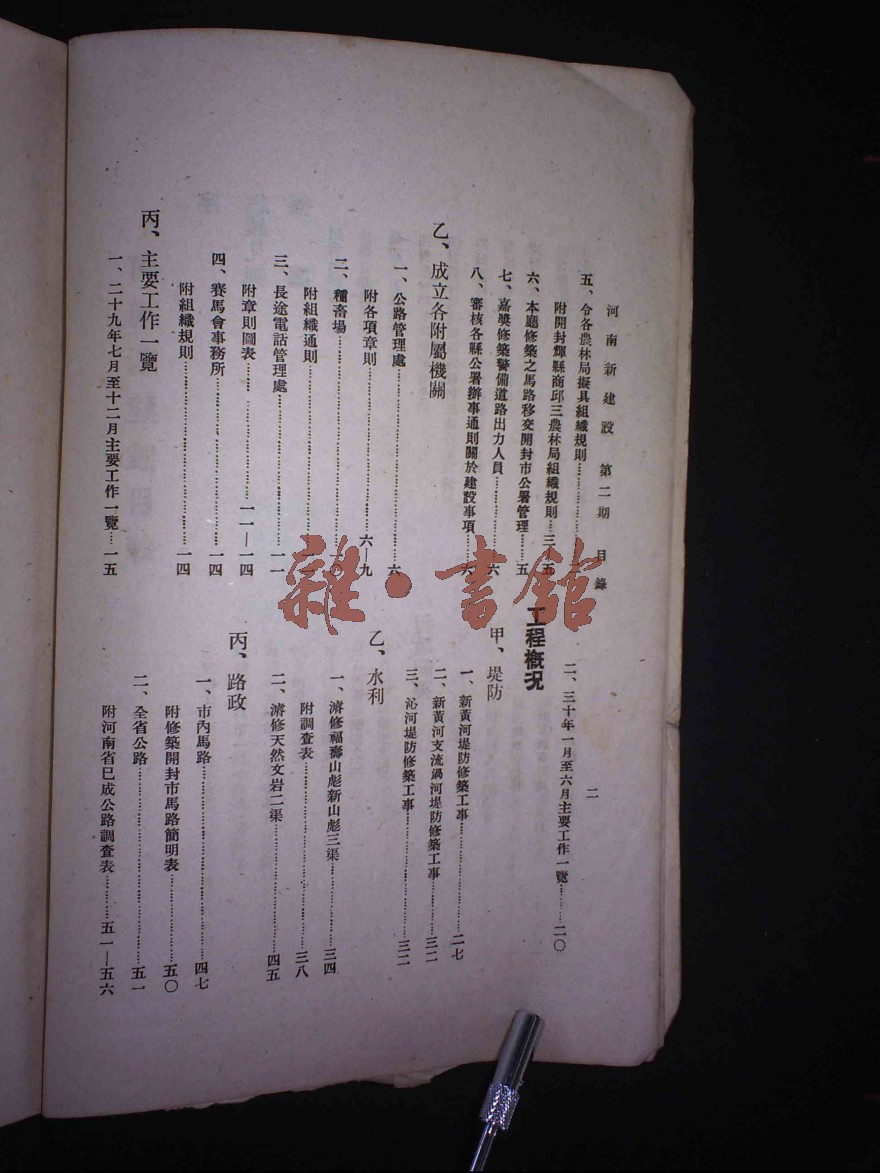 河南新建設 第二期 目錄 二
五、令各農林局擬具組織規則……五
附開封輝縣商邱三農林局組織規則…三—五
六、本廳修築之馬路移交開封市公署管理……五
七、嘉獎修築警備道路出力人員……六
八、審核各縣公署辦事通則關於建設事項……六
乙、成立各附屬機關
一、公路管理處……六
附各項章則……六—九
二、種畜場……一〇
附組織通則……
三、長途電話管理處……一一
附章則圖表……一一—一四
四、賽馬會事務所……一四
附組織規則……一四
丙、主要工作一覽
一、二十九年七月至十二月主要工作一覽…一五
二、三十年一月至六月主要工作一覽……二〇
工程概況
甲、堤防
一、新黃河堤防修築工事……二七
二、新黃河支流渦河堤防修築工事……三二
三、沁河堤防修築工事……三二
乙、水利
一、濬修福壽山彪新山彪三渠……三四
附調查表……三八
二、濬修天然文岩二渠……四五
丙、路政
一、市內馬路……四七
附修築開封市馬路簡明表……五〇
二、全省公路……五一
附河南省已成公路調查表……五一—五六
雜·書館